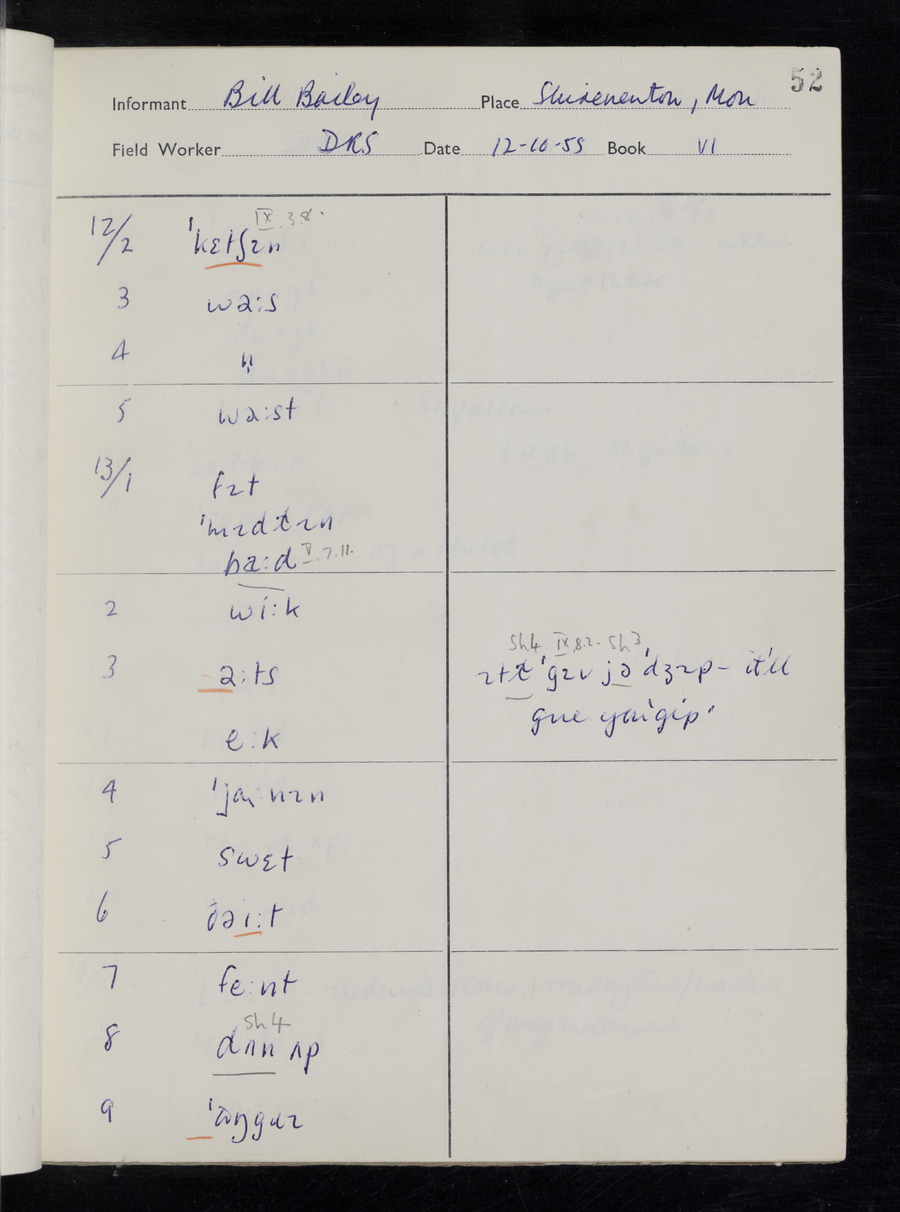 52
Informant Bill Bailey Place Shirenewton, Mon
Field Worker DRS Date 12-10-55 Book VI
IX.3.8.
12/2 ˈkɛtʃɪn
3 wəːs
4 "
5 wəːst
13/1 fɪt
ˈmɪdtɪn
bəːd V.7.11.
2 wiːk
Sh4 IX.8.2. Sh3
3 əːts ɪtt ˈgɪv jə ˈdʒɪp - it'll
give you 'gip'
eːk
4
5 swɛt
6
7 feːnt
Sh4
8 dʌn ʌp
9